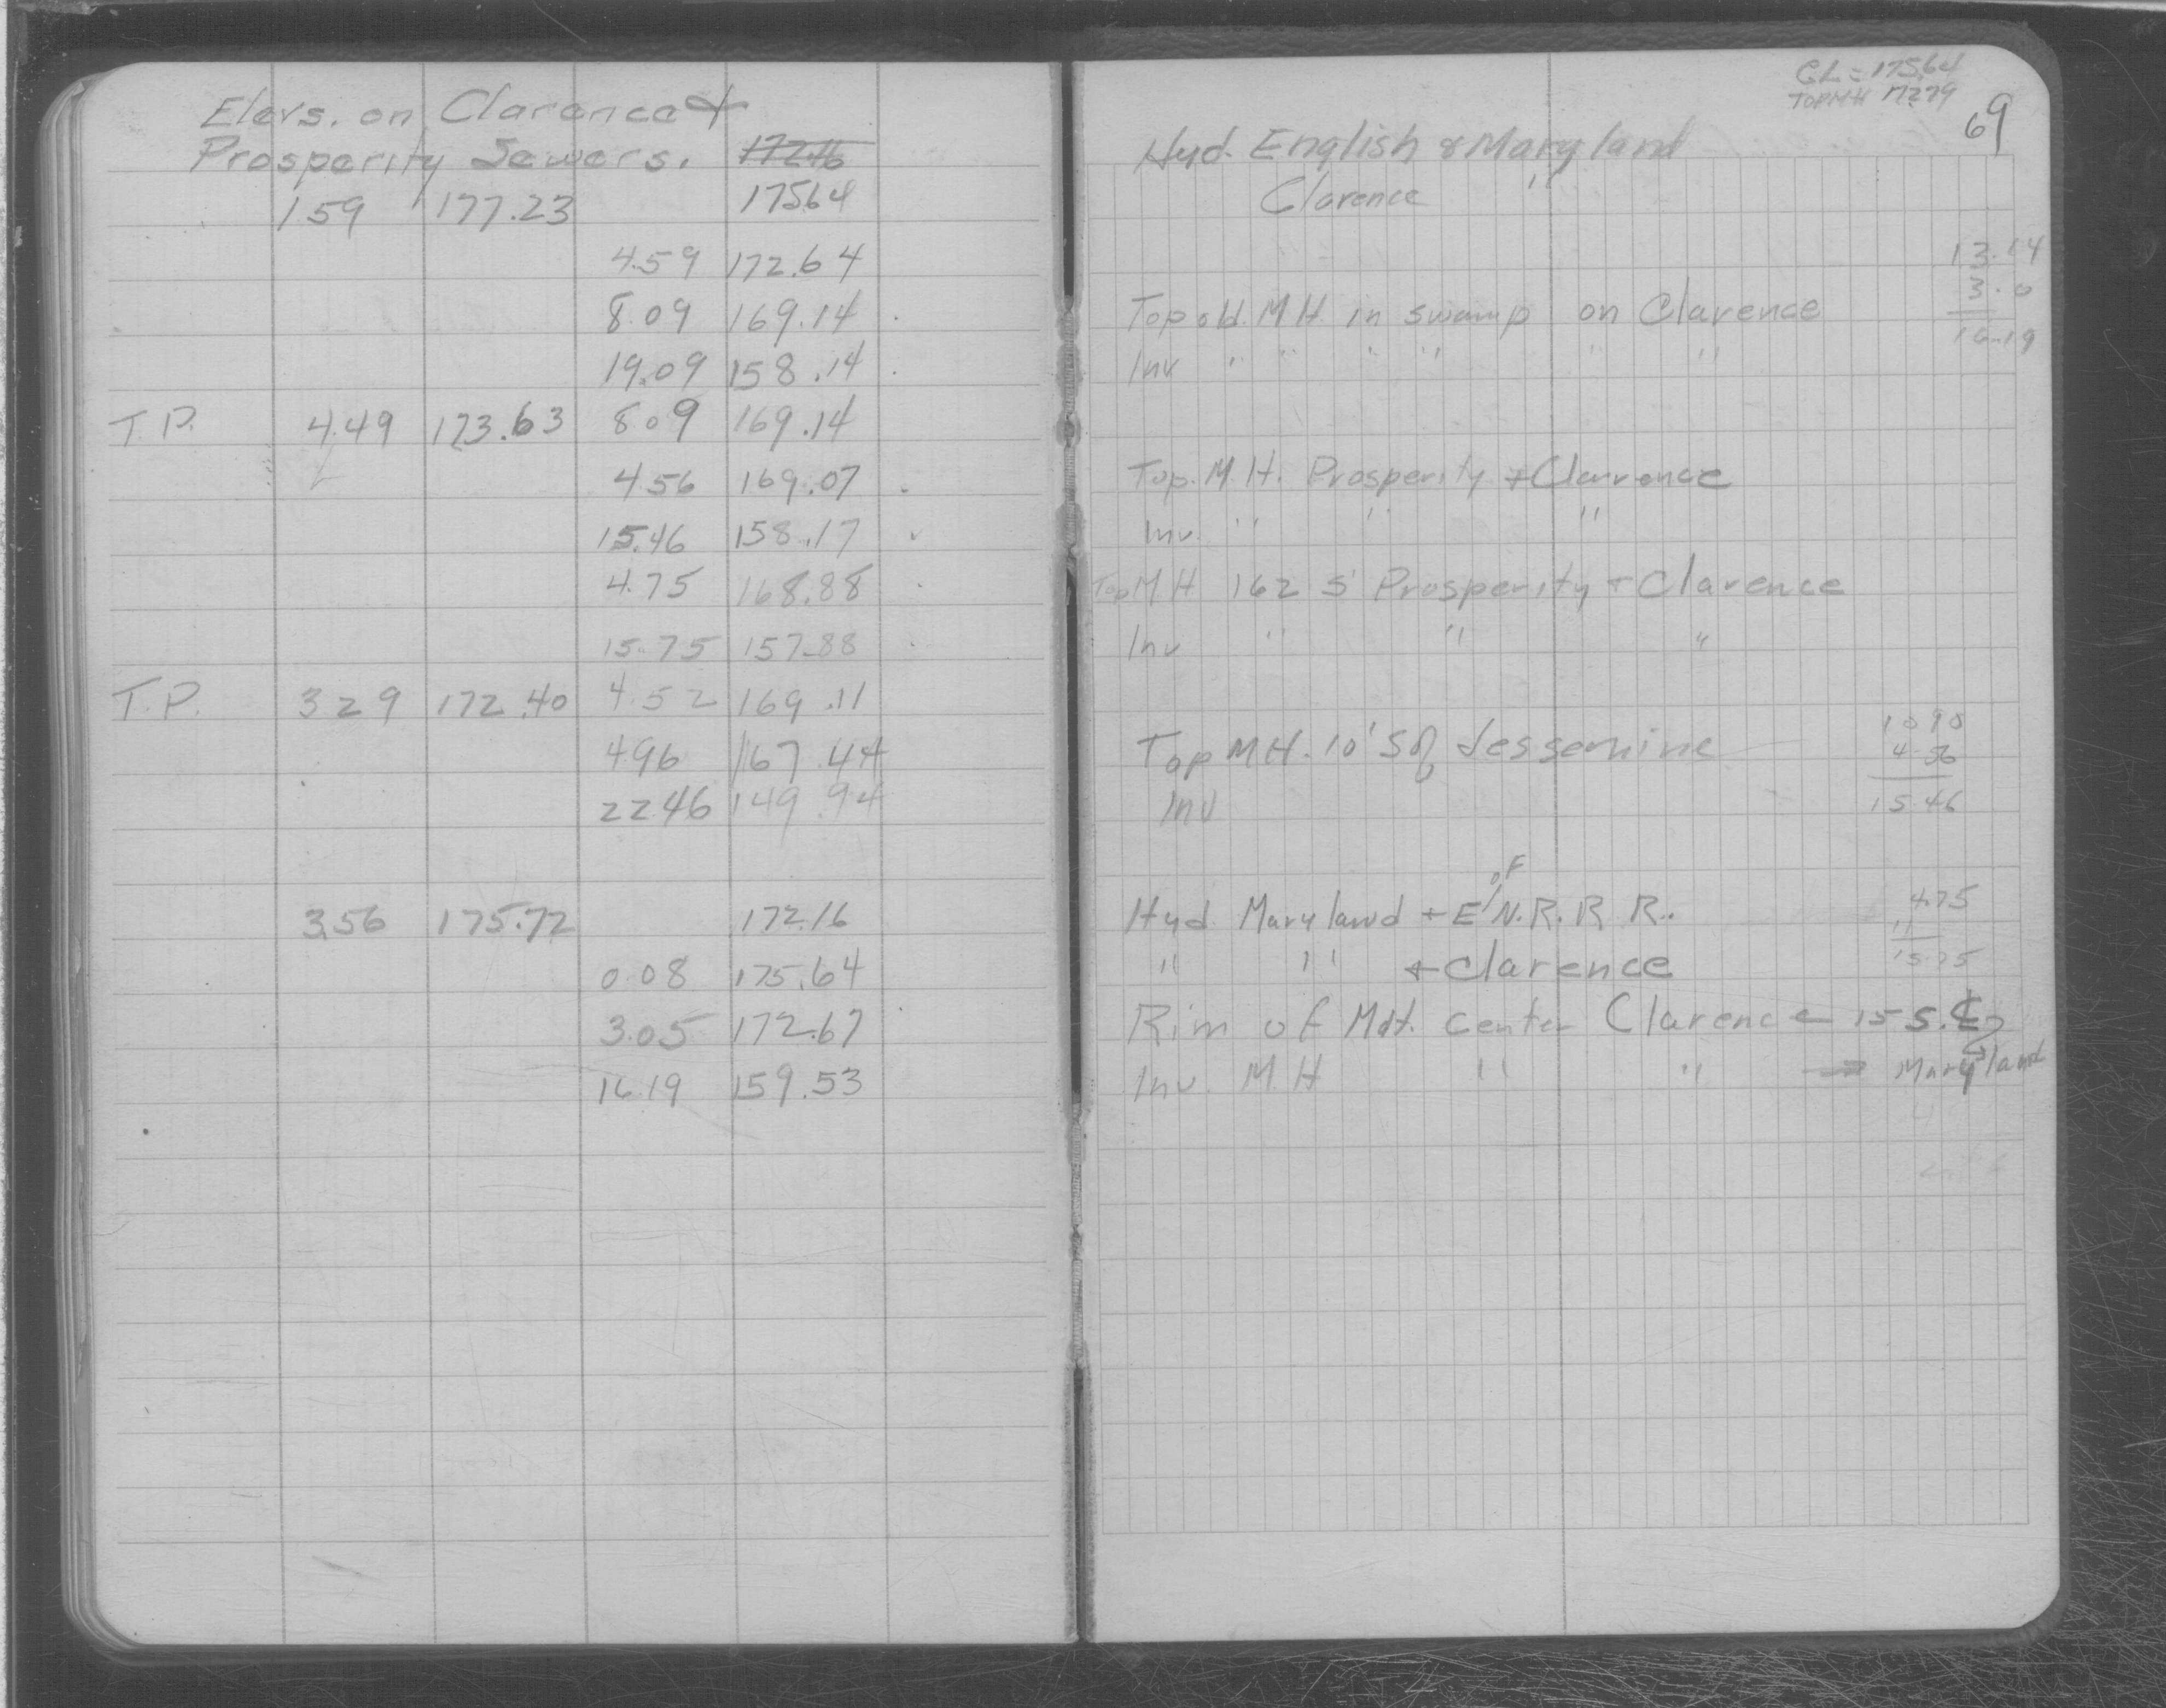 Elevs. on Clarence &
Prosperity Sewers. 172.16
1.59 177.23 175.64
4.59 172.64
8.09 169.14
19.09 158.14
T.P. 4.49 173.63 8.09 169.14
4.56 169.07
15.46 158.17
4.75 168.88
15.75 157.88
T.P. 3.29 172.40 4.52 169.11
4.96 167.44
22.46 149.94
3.56 175.72 172.16
0.08 175.64
3.05 172.67
16.19 159.53
CL = 175.64
TOP MH
69
Hyd. English & Maryland
Clarence "
13.14
3.0
16.19
Top old. M.H. in swamp on Clarence
Inv " " " " " "
Top. M.H. Prosperity & Clarence
Inv. " " "
Top MH 162 S' Prosperity & Clarence
Inv " " "
Top MH. 10' S of Jessemine
Inv
10 90
4.56
15.46
Hyd Maryland & E of N.R.R R.
" " & Clarence
4.75
11
15.75
Rim of MH. Center Clarence 15 S. ℄
Inv. M H " " Maryland